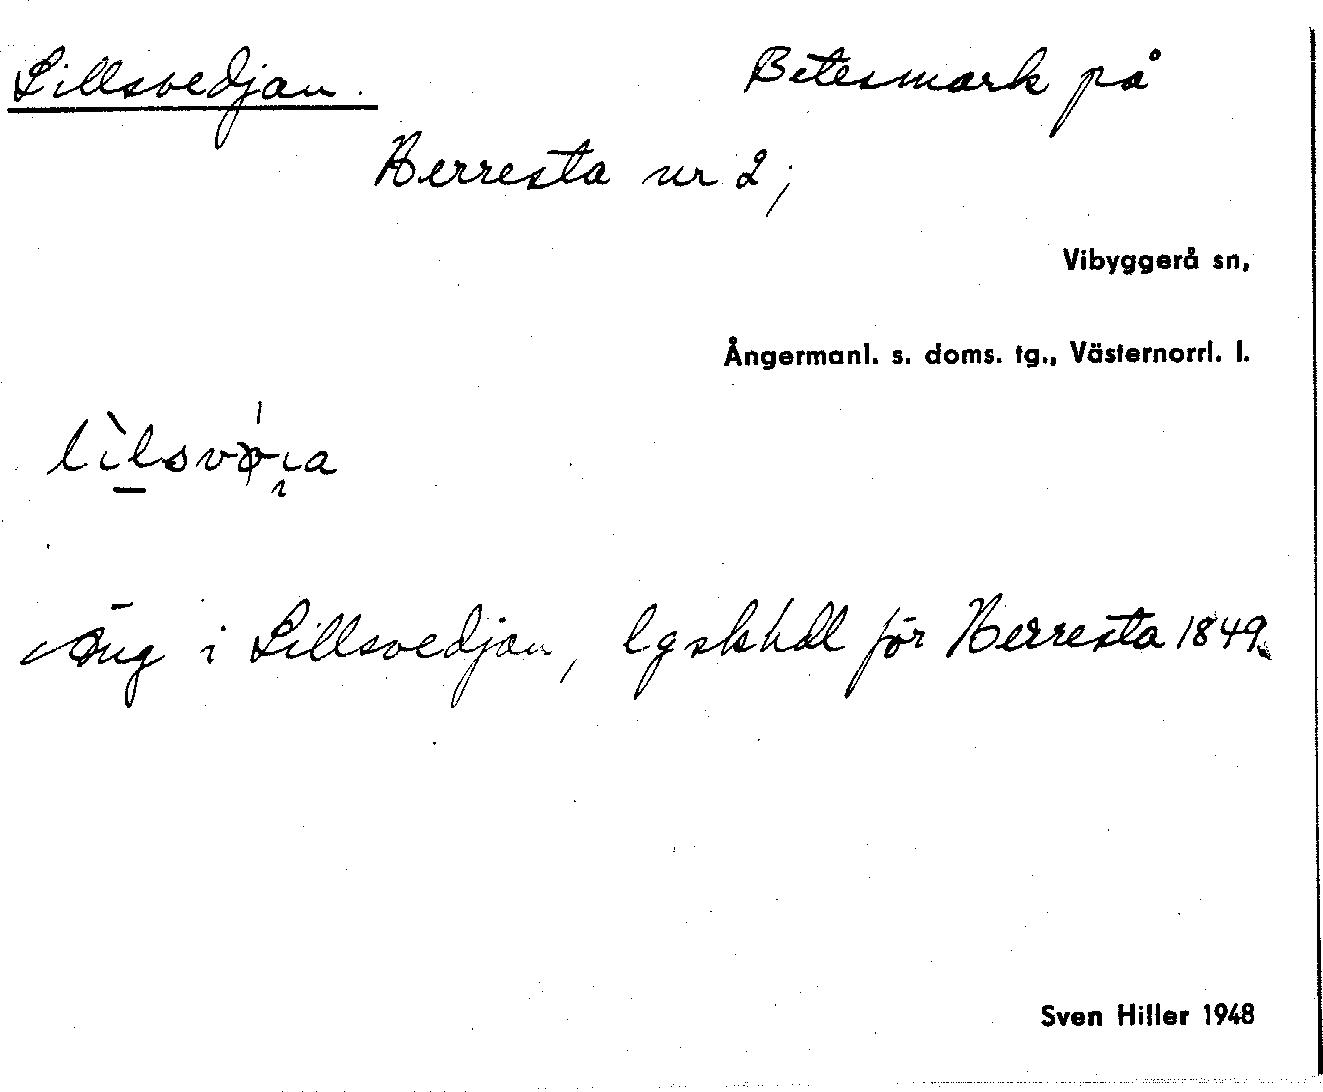 Lillsvedjan. Betesmark på
Herresta nr 2;
Vibyggerå sn,
Ångermanl. s. doms. tg., Västernorrl. l.
Äng i Lillsvedjan, lgskhdl för Herresta 1849.
Sven Hiller 1948